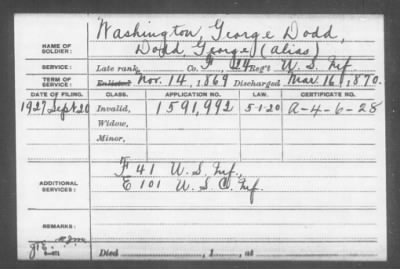 Washington, George Dodd,
NAME OF SOLDIER: Dodd, George (alias)
SERVICE: Late rank, Co. F, 24 Reg't U. S. Inf.
TERM OF SERVICE: Enlisted Nov. 14, 1869 Discharged Mar. 16, 1870.
DATE OF FILING. CLASS. APPLICATION NO. LAW. CERTIFICATE NO.
1927 Sept 20 Invalid, 1591,992 5-1-20 A-4-6-28
Widow,
Minor,
ADDITIONAL SERVICES: F 41 U. S. Inf.,
E 101 U. S. C. Inf.
Died , 1